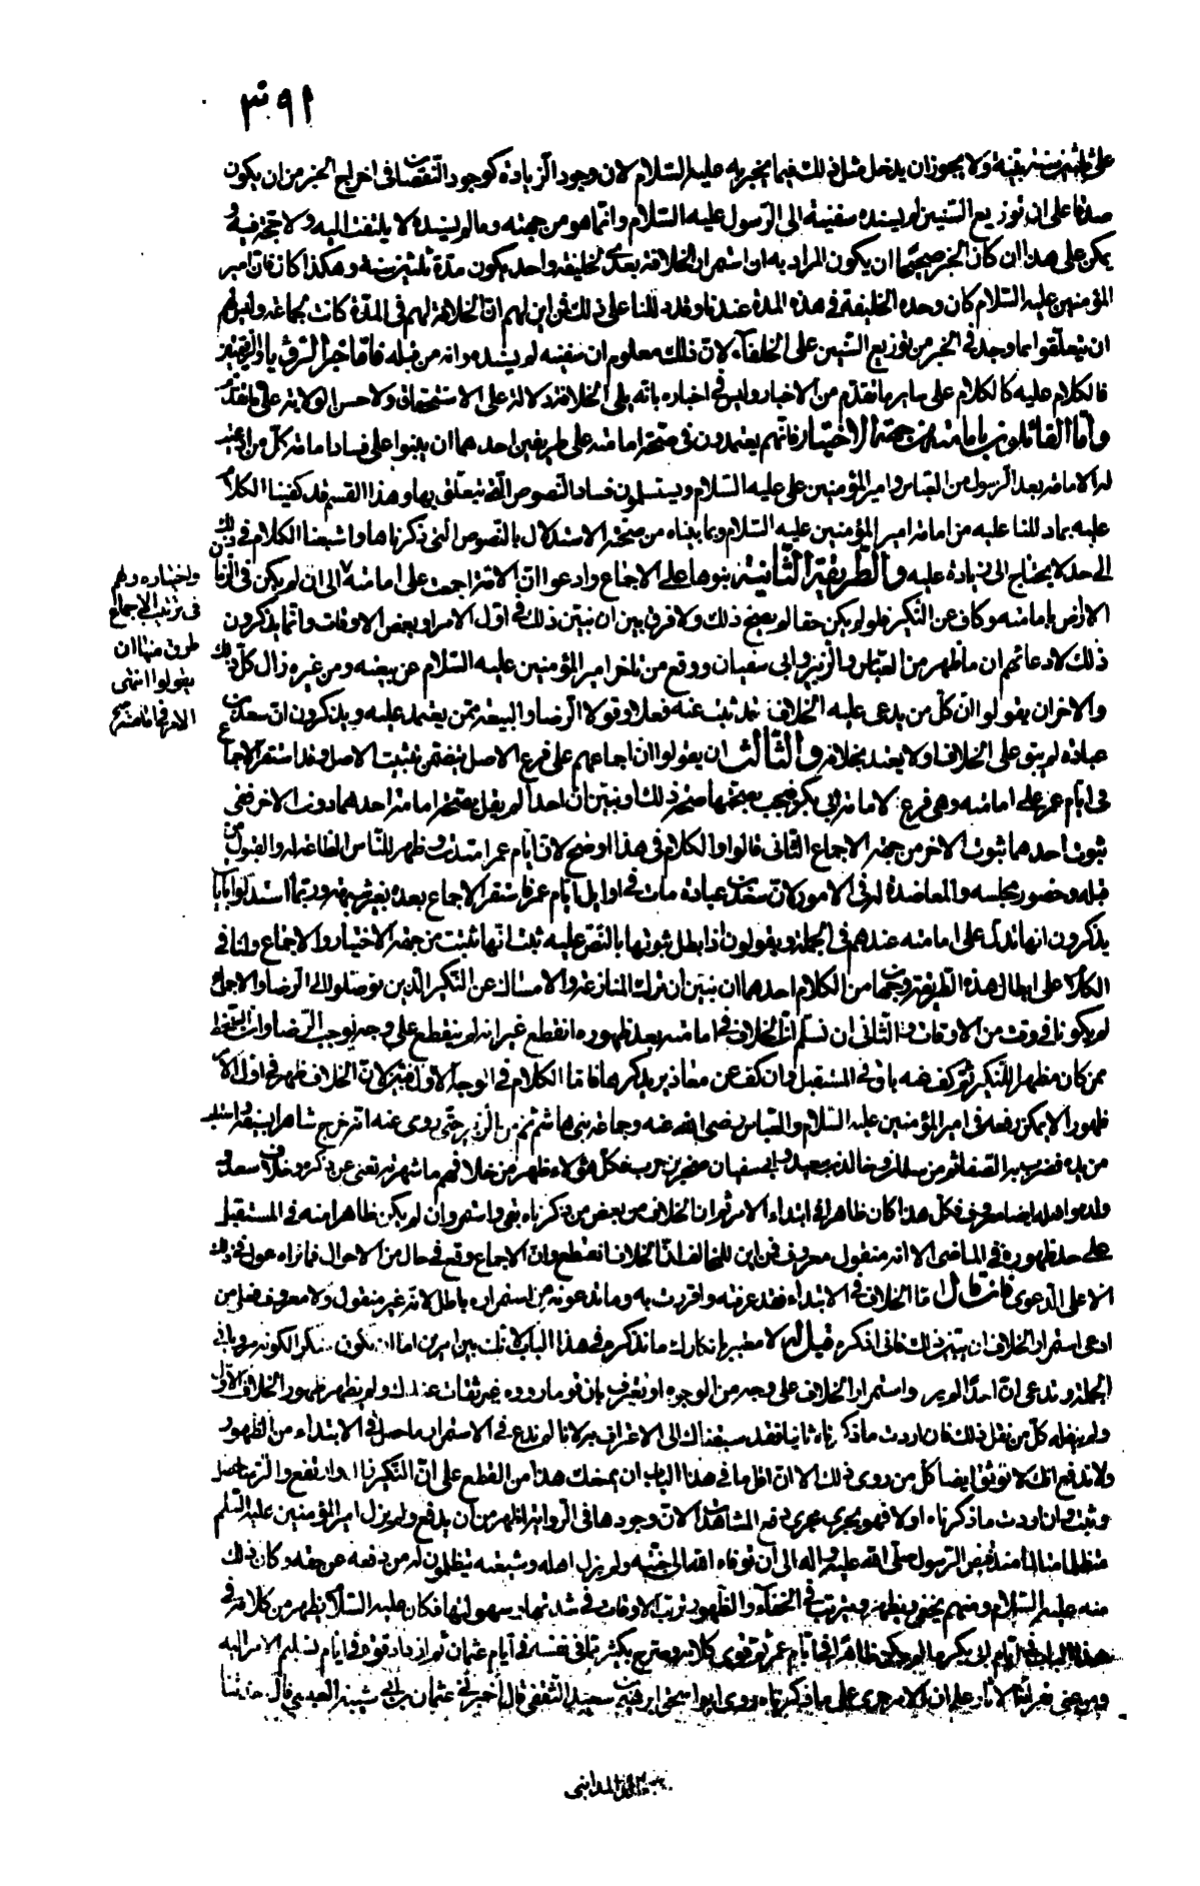 ٣٩١
على ثلثين سنة بقية ولا يجوز ان يدخل مثل ذلك فيما يخبر به عليه السّلام لان وجود الزيادة كوجود النقصان فى اخراج الخبر من ان يكون
صدقا على ان توزيع السّنين لم يسنده سفينة الى الرّسول عليه السّلام وانّما هو من جهته وما لم يسنده لا يلتفت اليه ولا حجّة فيه و
يمكن على هذا ان كان الخبر صحيحا ان يكون المراد به ان استمرار الخلافة بعدى لخليفة واحد يكون مدّة ثلثين سنة وهكذا كان فان امير
المؤمنين عليه السّلام كان وحده الخليفة فى هذه المدّة عندنا وقد دللنا على ذلك فمن اين لهم انّ الخلافة لهم فى المدّة كانت لجماعة وليس لهم
ان يتعلّقوا بما وجد فى الخبر من توزيع السّنين على الخلفاء لانّ ذلك معلوم ان سفينه لم يسنده وانه من قبله فاما خبر
فالكلام عليه كالكلام على ساير ما تقدّم من الاخبار وليس فى اخباره بانه يلى الخلافة دلالة على الاستحقاق ولا حسن الولاية على ما تقدّم
وامّا القائلون بامامته من جهة الاختيار فانّهم يعتمدون فى صحّة امامته على طريقين احدهما ان يبنوا على فساد امامة كلّ من ادّعيت
له الامامة بعد الرّسول من العبّاس وامير المؤمنين على عليه السّلام و فساد النّصوص الّتى يتعلّق بها وهذا القسم قد كفينا الكلام
عليه بما دللنا عليه من امامة امير المؤمنين عليه السّلام وبما بيّناه من صحّة الاستدلال بالنّصوص الّتى ذكرناها واشبعنا الكلام فى ذلك
الى حد لا يحتاج الى زيادة عليه والطّريقة الثّانية بنوها على الاجماع وادعوا انّ الامّة اجمعت على امامته الى ان لم يكن فى الزّمان
الا راض بامامته وكاف عن النّكير فلو لم يكن حقا لم يصح ذلك ولا فرق بين ان نبيّن ذلك فى اوّل الامر او بعض الاوقات وانّما يذكرون
ذلك لادعائهم ان ما ظهر من العبّاس والزّبير وابى سفيان ووقع من تاخر امير المؤمنين عليه السّلام عن بيعته ومن غيره زال كلّ ذلك
والاخر ان يقولوا انّ كلّ من يدعى عليه الخلاف قد ثبت عنه فعلا وقولا الرّضا والبيعة ممّن يعتمد عليه ويذكرون انّ سعد بن
عبادة لم يبق على الخلاف او لا يعتد بخلافه والثّالث ان يقولوا انّ اجماعهم على فرع الاصل يتضمّن تثبيت الاصل وقد استقرّ الاجماع
فى ايّام عمر على امامته وهى فرع لامامة ابى بكر فيجب بصحّتها صحّة ذلك او نبيّن انّ احدا لم يقل بصحّة امامة احدهما دون الاخر ففى
ثبوت احدهما ثبوت الاخر من جهة الاجماع الثّانى قالوا والكلام فى هذا اوضح لانّ ايّام عمر امتدّت وظهر للنّاس الطّاعة له والقبول من
قبله وحضور مجلسه والمعاضدة له فى الامور لانّ سعد بن عبادة مات فى اوايل ايّام عمر فاستقرّ الاجماع بعده بغير شبهة وربّما استدلّوا بآيات
يذكرون انها تدلّ على امامته عندهم فى الجملة ويقولون اذا بطل ثبوتها بالنّصّ عليه ثبت انها تثبت من جهة الاختيار والاجماع ولنا فى
الكلام على ابطال هذه الطّريقة وجهان من الكلام احدهما ان نبيّن انّ ترك المنازعة والامساك عن النّكير الّذين توصّلوا الى الرّضا والاجماع
لم يكونا فى وقت من الاوقات والثّانى ان نسلّم انّ الخلاف فى امامته بعد ظهوره انقطع غير انه لم ينقطع على وجه يوجب الرّضا وان السّخط
ممّن كان مظهرا للنّكير ثم كف عنه باق فى المستقبل وان كف عن معاذير يذكرها فامّا الكلام فى الوجه الاوّل فبيّن لانّ الخلاف ظهر فى اوّل الامر
ظهورا لا يمكن دفعه فى امير المؤمنين عليه السّلام والعبّاس رضى الله عنه وجماعة بنى هاشم ثم من الزّبير حتّى روى عنه انه خرج شاهرا سيفه واستلب
من يده فضرب به الصّفا ثم من سلمان وخالد بن سعيد وابى سفيان صخر بن حرب فكلّ هؤلاء ظهر من خلافهم ما شهرته تغنى عن ذكره وخلاف سعد و
ولده واهله ايضا معروف فكلّ هذا كان ظاهرا فى ابتداء الامر ثم ان الخلاف من بعض من ذكرناه بقى واستمرّ وان لم يكن ظاهرا منه فى المستقبل
على حد ظهوره فى الماضى الا انه منقول معروف فمن اين للمخالف انّ الخلاف انقطع وان الاجماع وقع فى حال من الاحوال فما نراه عوّل فى ذلك
الا على الدّعوى فان قال امّا الخلاف فى الابتداء فقد عرفته واقررت به وما تدعونه من استمراره باطل لانه غير منقول ولا معروف فعلى من
ادعى استمرار الخلاف ان يبيّن ذلك فانى انكره قيل له لا معتبر بانكارك ما نذكره فى هذا الباب لانّك بين امرين امّا ان تكون منكرا لكونه مرويا فى
الجملة وتدعى انّ احدا لم يرو استمرار الخلاف على وجه من الوجوه او تعترف بان قوما رووه غير ثقات عندك ولم يظهر ظهور الخلاف الاوّل
ولم ينقله كلّ من نقل ذلك فان اردت ما ذكرناه ثانيا فقد سبقناك الى الاعتراف به لانا لم ندع فى الاستمرار ما حصل فى الابتداء من الظّهور
ولا ندفع انّك لا توثق ايضا كل من روى ذلك الا انّ اقلّ ما فى هذا الباب ان يمنعك هذا من القطع على انّ النّكير زال وارتفع والرّضا حصل
وثبت وان اردت ما ذكرناه اولا فهو يجرى مجرى دفع المشاهدات لانّ وجود هذا فى الرّواية اظهر من ان يدفع ولم يزل امير المؤمنين عليه السّلم
متظلما متالما منذ قبض الرّسول صلّى الله عليه واله الى ان توفاه الله الى جنّته ولم يزل اهله وشيعته يتظلّمون له من دفعه عن حقه وكان ذلك
منه عليه السّلام ومنهم يخفى ويظهر ويترتب فى الخفاء والظّهور ترتب الاوقات فى شدتها وسهولتها فكان عليه السّلام يظهر من كلامه فى
هذا الباب فى ايّام ابى بكر ما لم يكن ظاهرا فى ايّام عمر ثم قوى كلامه وصرح بكثير ممّا فى نفسه فى ايّام عثمان ثم ازداد قوة فى ايّام تسليم الامر اليه
ومن عنى بقرائة الاثار علم ان الامر جرى على ما ذكرناه روى ابو اسحق ابراهيم بن سعيد الثّقفى قال اخبرنى عثمان بن ابى شيبة العبسى قال حدّثنا
واختياره ولهم
فى ترتيب الاجماع
طرق منها ان
يقولوا انتهى
الامر فى امامته
المداينى